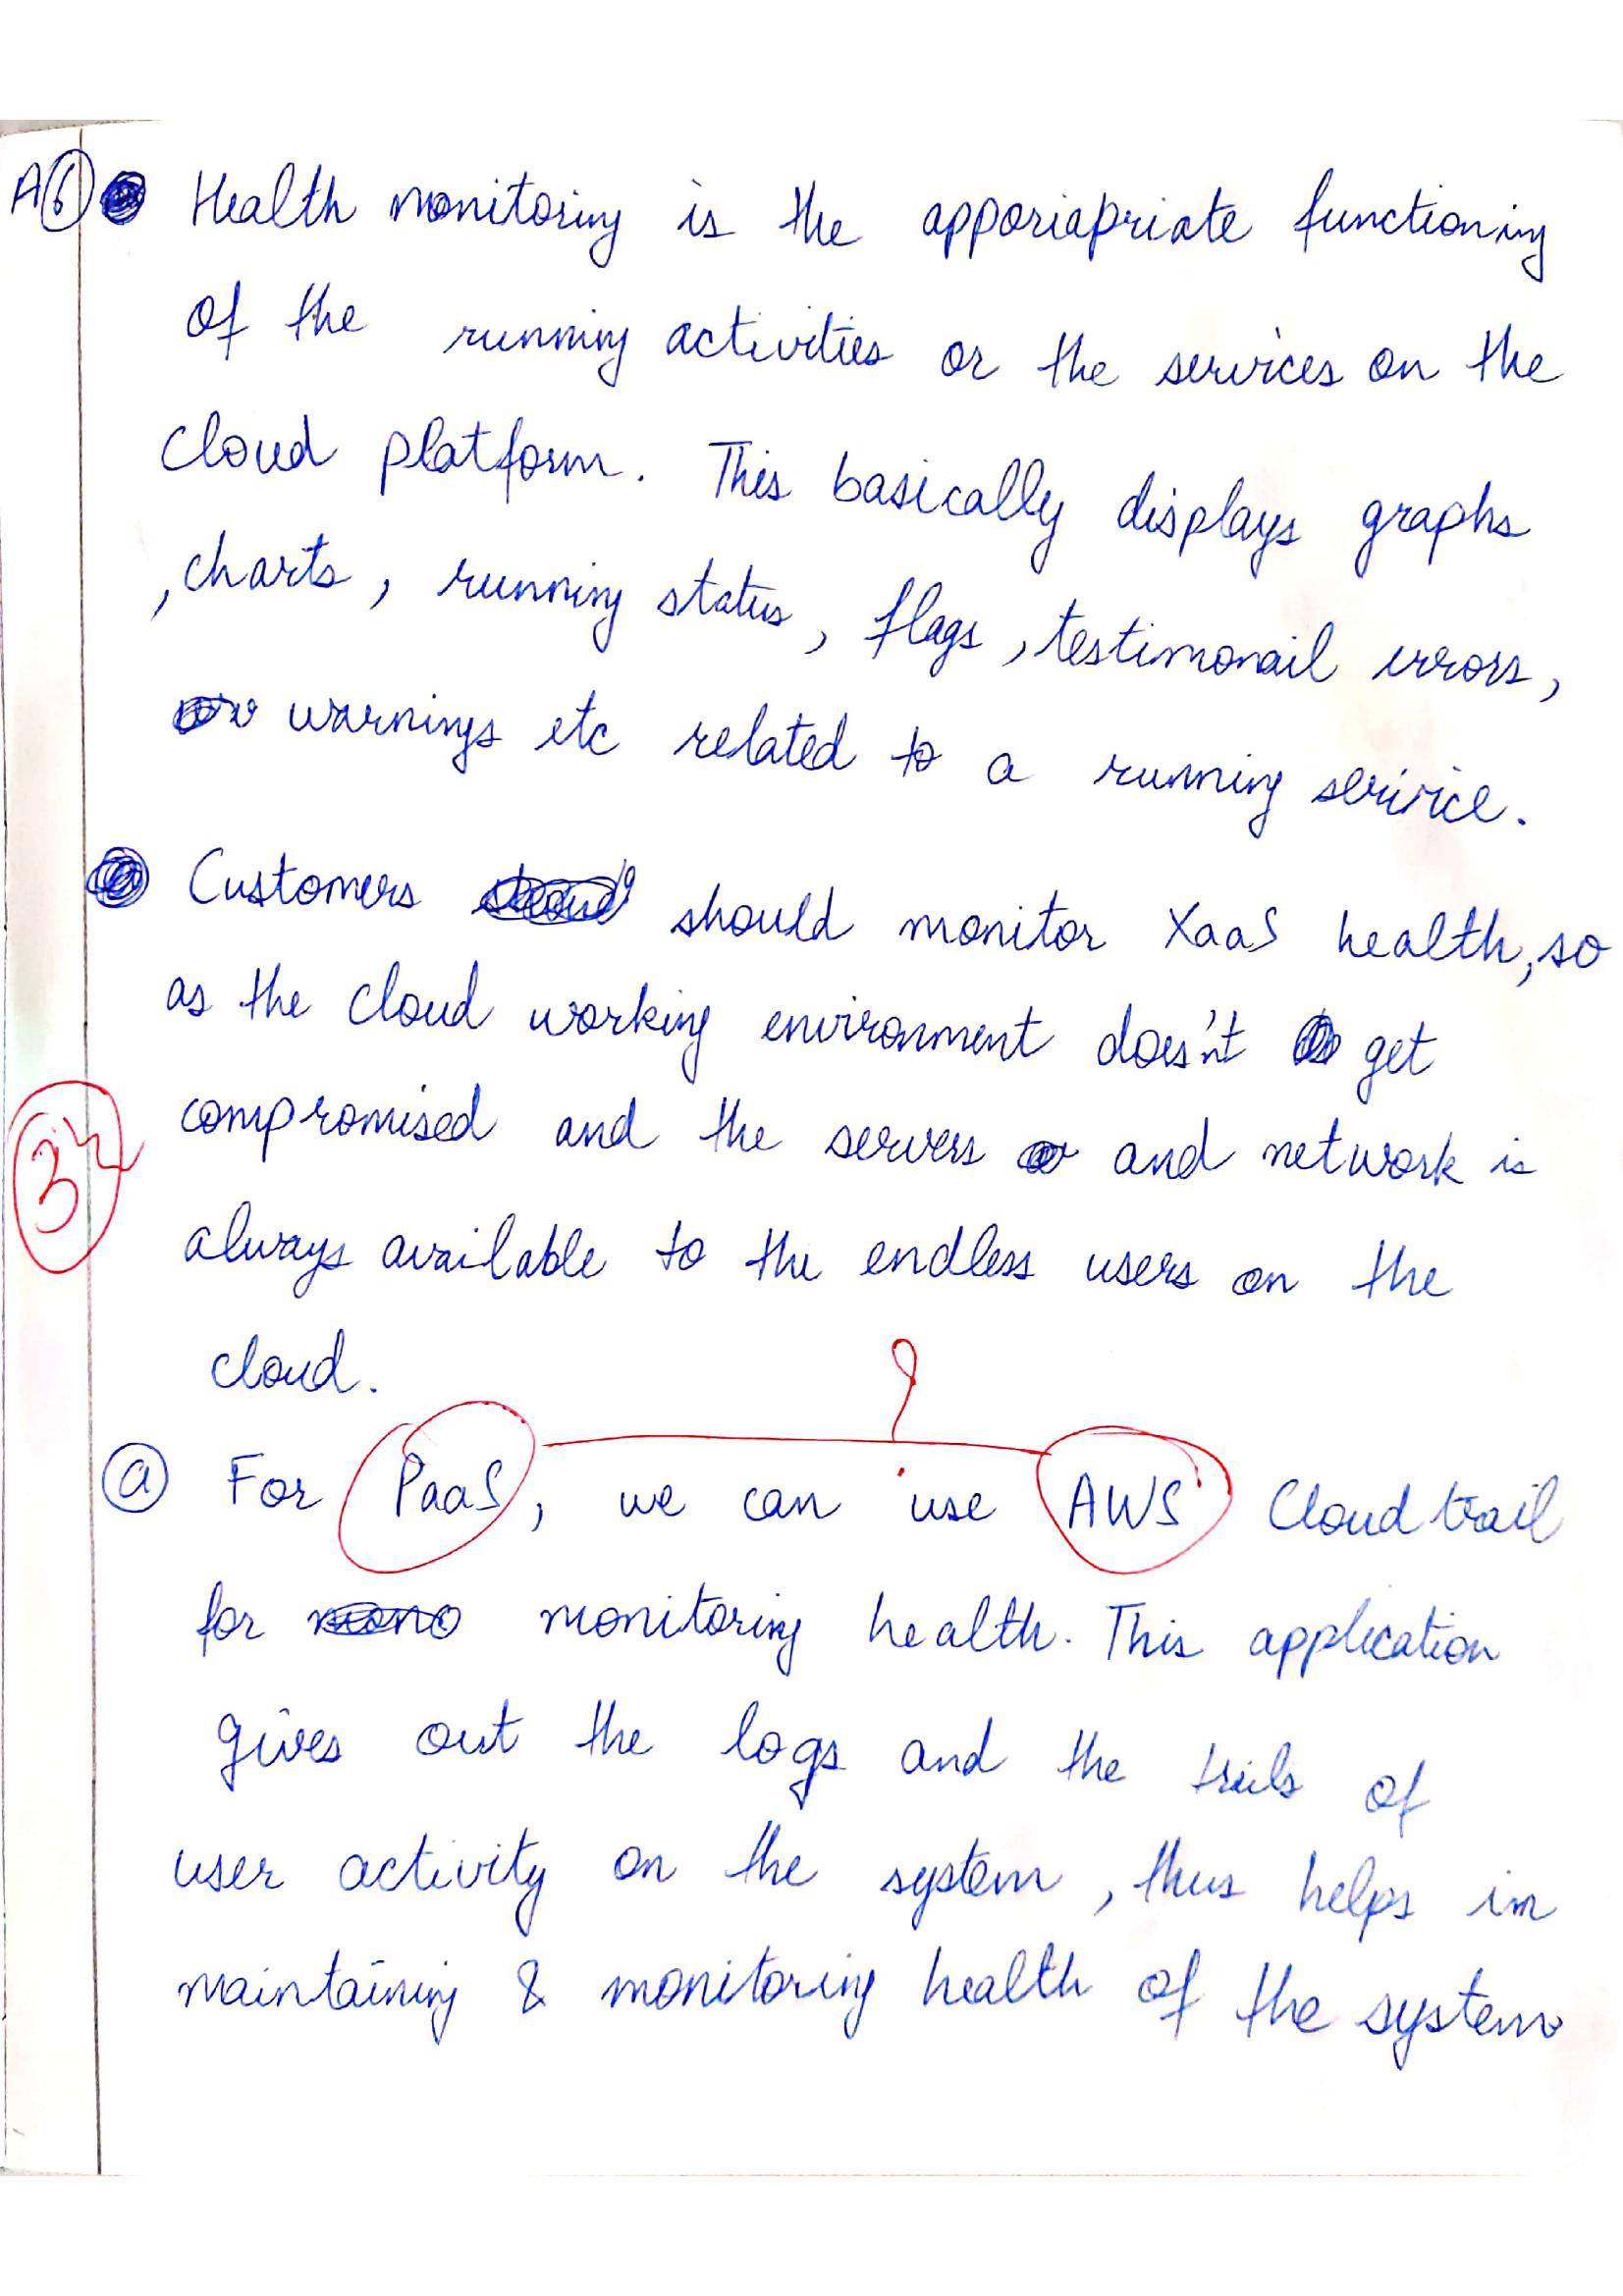 A6 Health monitoring is the apporiapriate functioning
of the running activities or the services on the
cloud platform. This basically displays graphs
, charts, running status, flags, testimonail errors,
warnings etc related to a running serivice.
Customers should monitor XaaS health, so
as the cloud working environment does'nt get
compromised and the servers and network is
always available to the endless users on the
cloud.
a For PaaS, we can use AWS Cloud trail
for monitoring health. This application
gives out the logs and the trails of
user activity on the system, thus helps in
maintaining & monitoring health of the system